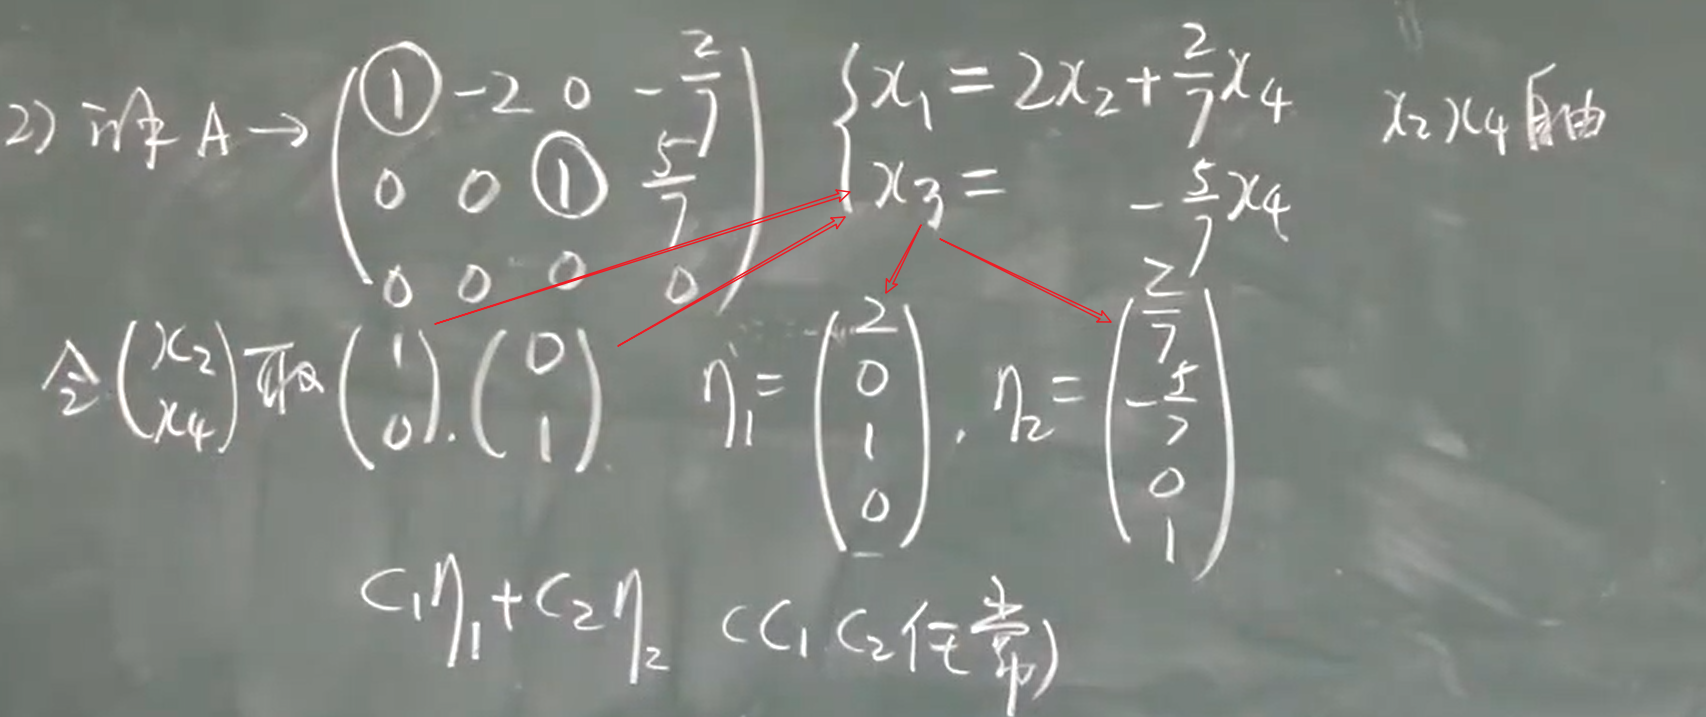 2) 解 A → (① -2 0 -2/7
0 0 ① 5/7
0 0 0 0)
{x₁ = 2x₂ + 2/7 x₄
x₃ = -5/7 x₄
x₂ x₄ 自由
令 (x₂ x₄) 取 (1 0). (0 1).
η₁ = (2 0 1 0), η₂ = (2/7 -5/7 0 1)
C₁η₁ + C₂η₂ (C₁ C₂ 任意)